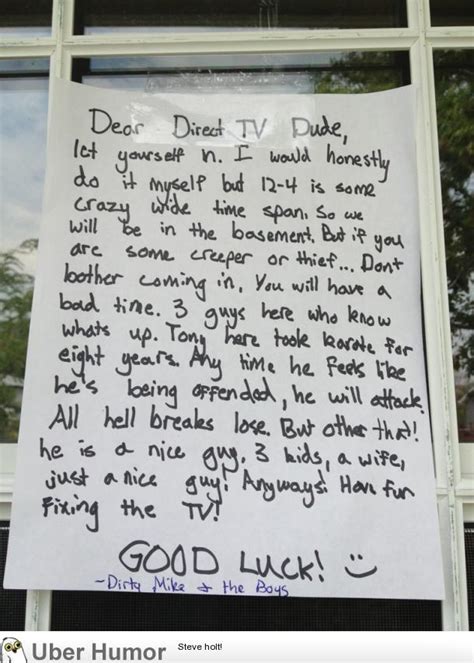 Dear Direct TV Dude,
let yourself n. I would honestly
do it myself but 12-4 is some
crazy wide time span. So we
will be in the basement. But if you
are some creeper or thief... Dont
bother coming in, You will have a
bad time. 3 guys here who know
whats up. Tony here took karate for
eight years. Any time he feels like
he's being offended, he will attack.
All hell breaks lose. But other that!
he is a nice guy. 3 kids, a wife,
just a nice guy! Anyways! Have fun
fixing the TV!
GOOD LUCK!
~Dirty Mike & the Boys
Uber Humor Steve holt!